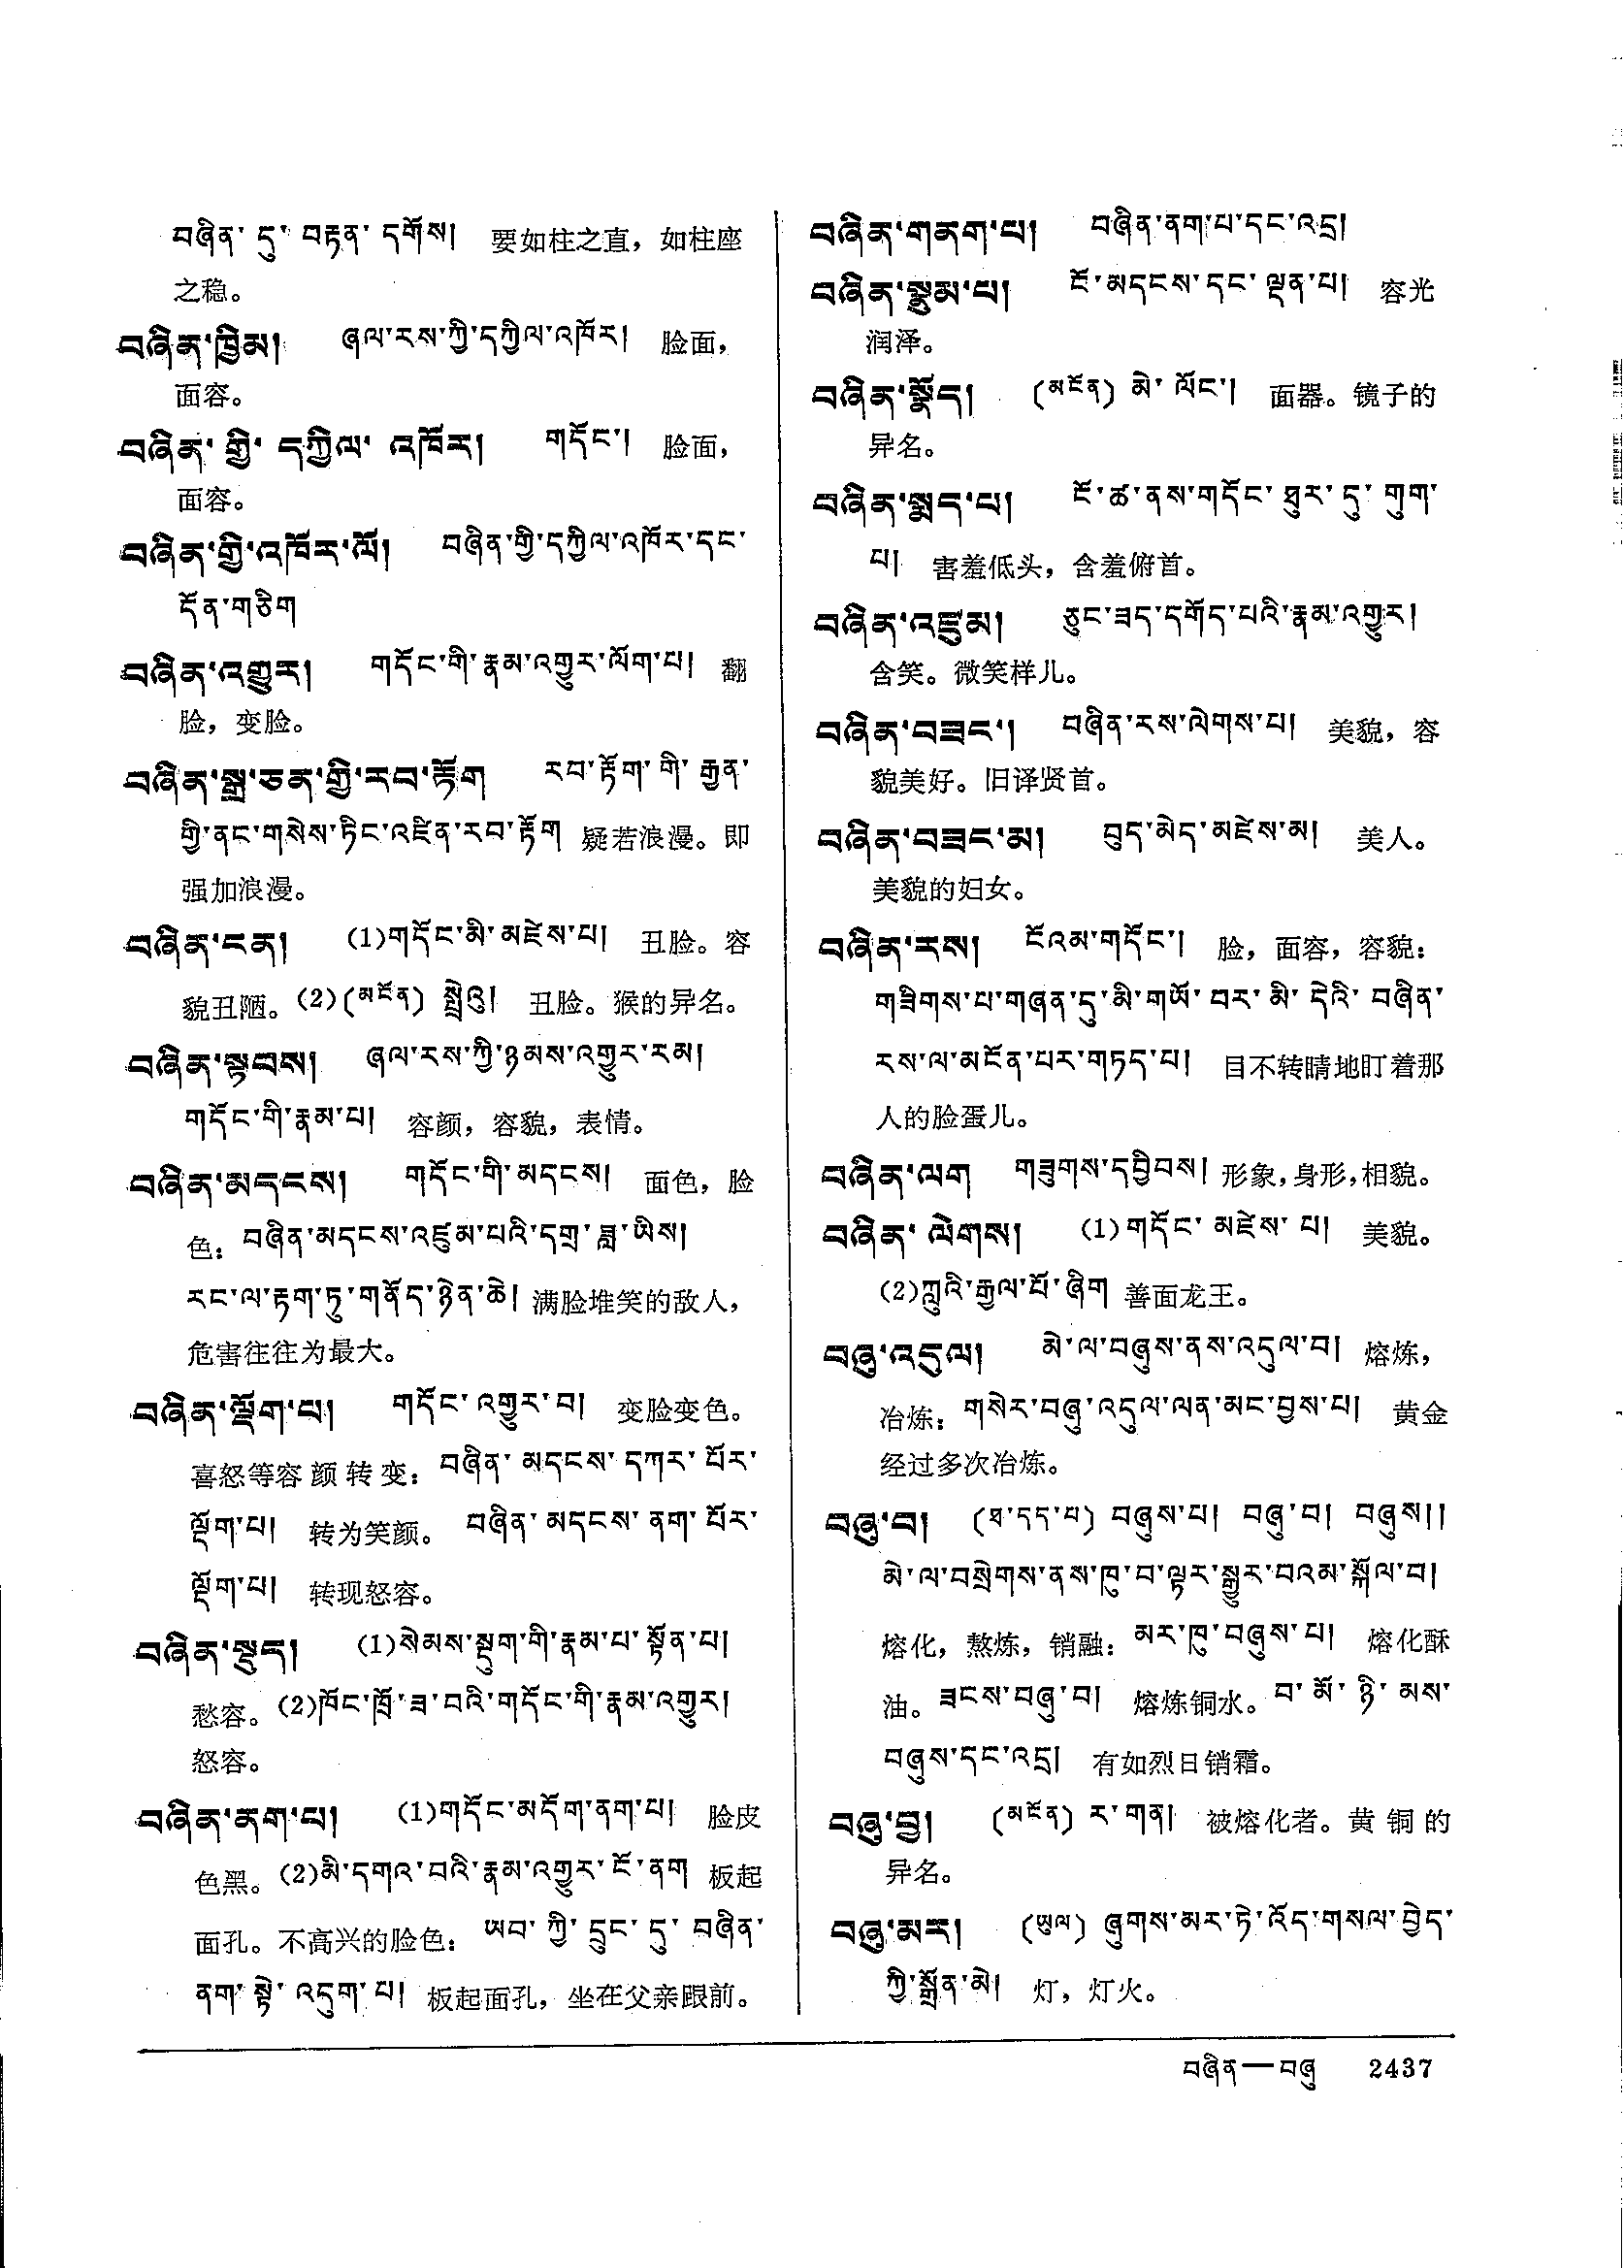 བཞིན་ དུ་ བརྟན་ དགོས། 要如柱之直，如柱座
之稳。
བཞིན་ཁྱིམ། ཞལ་རས་ཀྱི་དཀྱིལ་འཁོར། 脸面，
面容。
བཞིན་ གྱི་ དཀྱིལ་ འཁོར། གདོང་། 脸面，
面容。
བཞིན་གྱི་འཁོར་ལོ། བཞིན་གྱི་དཀྱིལ་འཁོར་དང་
དོན་གཅིག
བཞིན་འགྱུར། གདོང་གི་རྣམ་འགྱུར་ལོག་པ། 翻
脸，变脸。
བཞིན་སྒྲ་ཅན་གྱི་རབ་རྟོག རབ་རྟོག་གི་ རྒྱན་
གྱི་ནང་གསེས་ཏིང་འཛིན་རབ་རྟོག 疑若浪漫。即
强加浪漫。
བཞིན་ངན། (1)གདོང་མི་མཛེས་པ། 丑脸。容
貌丑陋。(2)(མངོན) སྤྲེའུ། 丑脸。猴的异名。
བཞིན་སྟབས། ཞལ་རས་ཀྱི་ཉམས་འགྱུར་རམ།
གདོང་གི་རྣམ་པ། 容颜，容貌，表情。
བཞིན་མདངས། གདོང་གི་མདངས། 面色，脸
色：བཞིན་མདངས་འཛུམ་པའི་དགྲ་ཟླ་ཡིས།
རང་ལ་རྟག་ཏུ་གནོད་ཉེན་ཆེ། 满脸堆笑的敌人，
危害往往为最大。
བཞིན་ལྡོག་པ། གདོང་འགྱུར་བ། 变脸变色。
喜怒等容颜转变：བཞིན་ མདངས་ དཀར་ པོར་
ལྡོག་པ། 转为笑颜。 བཞིན་ མདངས་ ནག་ པོར་
ལྡོག་པ། 转现怒容。
བཞིན་སྡུད། (1)སེམས་སྡུག་གི་རྣམ་པ་སྟོན་པ།
愁容。(2)ཁོང་ཁྲོ་ཟ་བའི་གདོང་གི་རྣམ་འགྱུར།
怒容。
བཞིན་ནག་པ། (1)གདོང་མདོག་ནག་པ། 脸皮
色黑。(2)མི་དགའ་བའི་རྣམ་འགྱུར་ངོ་ནག 板起
面孔。不高兴的脸色：ཡབ་ ཀྱི་ དྲུང་ དུ་ བཞིན་
ནག་ སྟེ་ འདུག་ པ། 板起面孔，坐在父亲跟前。
བཞིན་གནག་པ། བཞིན་ནག་པ་དང་འདྲ།
བཞིན་སྣུམ་པ། ངོ་མདངས་དང་ལྡན་པ། 容光
润泽。
བཞིན་སྣོད། (མངོན) མེ་ ལོང་། 面器。镜子的
异名。
བཞིན་སྨད་པ། ངོ་ཚ་ནས་གདོང་ཐུར་དུ་ གུག་
པ། 害羞低头，含羞俯首。
བཞིན་འཛུམ། ཅུང་ཟད་དགོད་པའི་རྣམ་འགྱུར།
含笑。微笑样儿。
བཞིན་བཟང་། བཞིན་རས་ལེགས་པ། 美貌，容
貌美好。旧译贤首。
བཞིན་བཟང་མ། བུད་མེད་མཛེས་མ། 美人。
美貌的妇女。
བཞིན་རས། ངོའམ་གདོང་། 脸，面容，容貌：
གཟིགས་པ་གཞན་དུ་མི་གཡོ་ བར་ མི་ དེའི་ བཞིན་
རས་ལ་མངོན་པར་གཏད་པ། 目不转睛地盯着那
人的脸蛋儿。
བཞིན་ལག གཟུགས་དབྱིབས། 形象，身形，相貌。
བཞིན་ ལེགས། (1)གདོང་ མཛེས་ པ། 美貌。
(2)ཀླུའི་རྒྱལ་པོ་ཞིག 善面龙王。
བཞུ་འདུལ། མེ་ལ་བཞུས་ནས་འདུལ་བ། 熔炼，
冶炼：གསེར་བཞུ་འདུལ་ལན་མང་བྱས་པ། 黄金
经过多次冶炼。
བཞུ་བ། (ཐ་དད་པ) བཞུས་པ། བཞུ་བ། བཞུས།།
མེ་ལ་བསྲེགས་ནས་ཁུ་བ་ལྟར་སྒྱུར་བའམ་སྐོལ་བ།
熔化，熬炼，销融：མར་ཁུ་བཞུས་པ། 熔化酥
油。ཟངས་བཞུ་བ། 熔炼铜水。བ་ མོ་ ཉི་ མས་
བཞུས་དང་འདྲ། 有如烈日销霜。
བཞུ་བྱ། (མངོན) ར་གན། 被熔化者。黄铜的
异名。
བཞུ་མར། (ཡུལ) ཞུགས་མར་ཏེ་འོད་གསལ་བྱེད་
ཀྱི་སྒྲོན་མེ། 灯，灯火。
བཞིན—བཞུ 2437